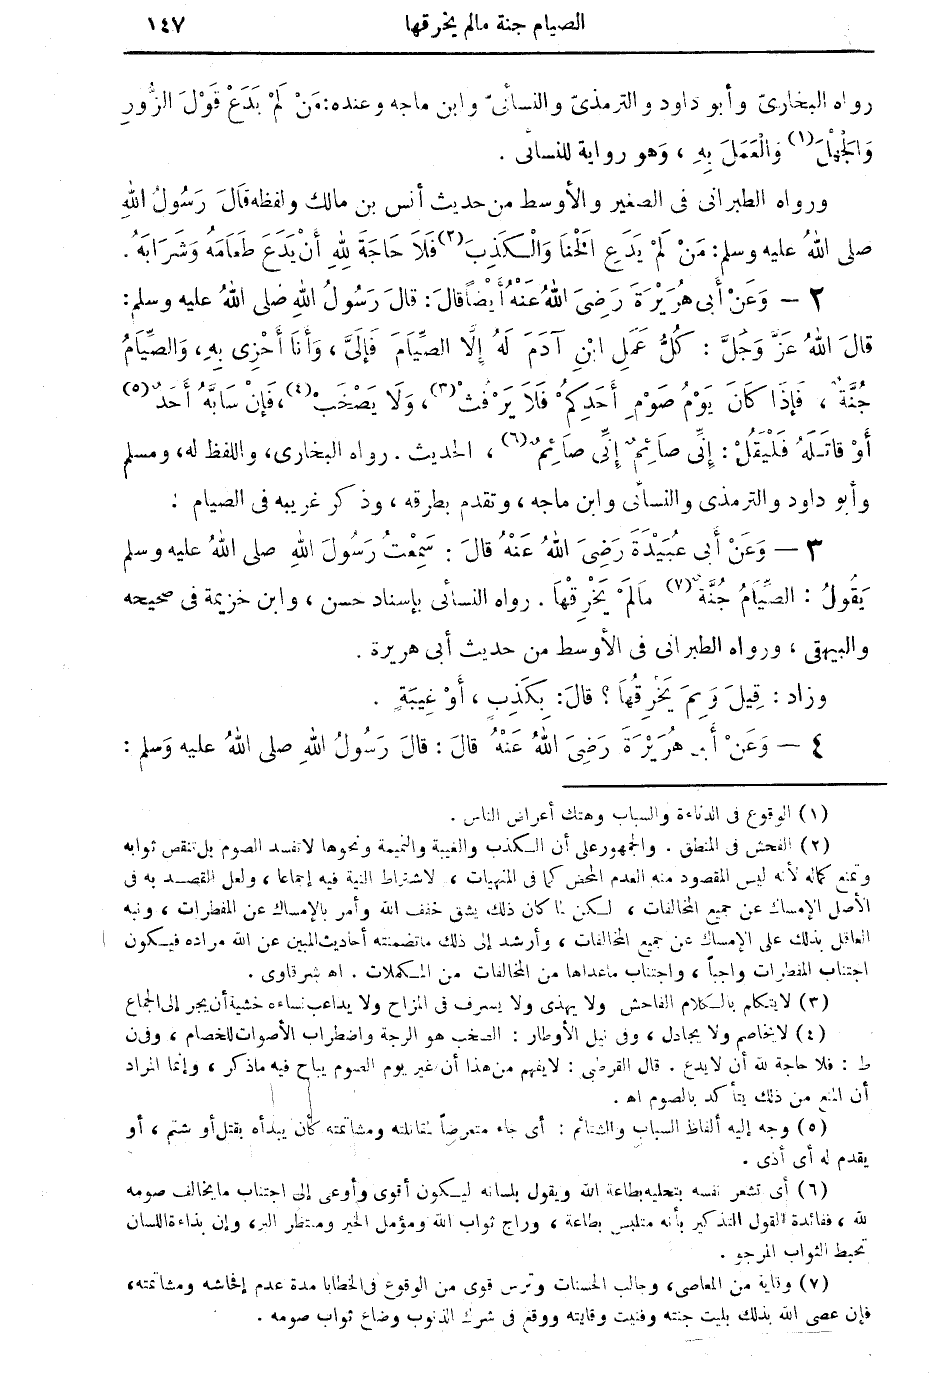 الصيام جنة مالم يخرقها ١٤٧
رواه البخارىّ وأبو داود والترمذىّ والنسائىّ وابن ماجه وعنده: مَنْ لَمْ يَدَعْ قَوْلَ الزُّورِ
وَالْجَهْلَ (١) وَالْعَمَلَ بِهِ ، وَهو رواية للنسائى .
ورواه الطبرانى فى الصغير والأوسط من حديث أنس بن مالك ولفظه قَالَ رَسُولُ اللهِ
صلى اللهُ عليه وسلم: مَنْ لَمْ يَدَعِ الْخَنَا وَالْكَذِبَ (٢) فَلَا حَاجَةَ لِلهِ أَنْ يَدَعَ طَعَامَهُ وَشَرَابَهُ .
٢ — وَعَنْ أَبى هُرَيْرَةَ رَضِىَ اللهُ عَنْهُ أَيْضاً قَالَ: قالَ رَسُولُ اللهِ صلى اللهُ عليه وسلم:
قالَ اللهُ عَزَّ وَجَلَّ : كُلُّ عَمَلِ ابْنِ آدَمَ لَهُ إِلَّا الصِّيَامَ فَإِنَّهُ لِى ، وَأَنَا أَجْزِى بِهِ ، وَالصِّيَامُ
جُنَّةٌ ، فَإِذَا كَانَ يَوْمُ صَوْمِ أَحَدِكُمْ فَلَا يَرْفُثْ (٣) ، وَلَا يَصْخَبْ (٤) ، فَإِنْ سَابَّهُ أَحَدٌ (٥)
أَوْ قَاتَلَهُ فَلْيَقُلْ : إِنِّى صَائِمٌ إِنِّى صَائِمٌ (٦) ، الحديث . رواه البخارى، واللفظ له، ومسلم
وأبو داود والترمذى والنسائى وابن ماجه ، وتقدم بطرقه ، وذكر غريبه فى الصيام :
٣ — وَعَنْ أَبى عُبَيْدَةَ رَضِىَ اللهُ عَنْهُ قالَ : سَمِعْتُ رَسُولَ اللهِ صلى اللهُ عليه وسلم
يَقُولُ : الصِّيَامُ جُنَّةٌ (٧) مَالَمْ يَخْرِقْهَا . رواه النسائى بإسناد حسن ، وابن خزيمة فى صحيحه
والبيهقى ، ورواه الطبرانى فى الأوسط من حديث أبى هريرة .
وزاد : قِيلَ وَبِمَ يَخْرِقُهَا ؟ قالَ: بِكَذِبٍ ، أَوْ غِيبَةٍ .
٤ — وَعَنْ أَبى هُرَيْرَةَ رَضِىَ اللهُ عَنْهُ قالَ : قالَ رَسُولُ اللهِ صلى اللهُ عليه وَسلم :
(١) الوقوع فى الدناءة والسباب وهتك أعراض الناس .
(٢) الفحش فى المنطق . والجمهور على أن الكذب والغيبة والنميمة ونحوها لا تفسد الصوم بل تنقص ثوابه
وتمنع كماله لأنه ليس المقصود منه العدم المحض كما فى المنهيات ، لاشتراط النية فيه إجماعا ، ولعل القصد به فى
الأصل الإمساك عن جميع المخالفات ، لكن لما كان ذلك يشق خفف الله وأمر بالإمساك عن المفطرات ، ونبه
العاقل بذلك على الإمساك عن جميع المخالفات ، وأرشد إلى ذلك ما تضمنته أحاديث المبين عن الله مراده فيكون
اجتناب المفطرات واجباً ، واجتناب ماعداها من المخالفات من المكملات . اه شرقاوى .
(٣) لا يتكلم بالكلام الفاحش ولا يهذى ولا يسرف فى المزاح ولا يداعب نساءه خشية أن يجر إلى الجماع
(٤) لا يخاصم ولا يجادل ، وفى نيل الأوطار : الصخب هو الرجة واضطراب الأصوات للخصام ، وفى ن
ط : فلا حاجة لله أن لا يدع . قال القرطبى : لا يفهم من هذا أن غير يوم الصوم يباح فيه ماذكر ، وإنما المراد
أن المنع من ذلك يتأكد بالصوم اه .
(٥) وجه إليه ألفاظ السباب والشتائم : أى جاء متعرضاً لمقاتلته ومشاتمته كأن يبدأه بقتل أو شتم ، أو
يقدم له أى أذى .
(٦) أى تشعر نفسه بتحليه بطاعة الله ويقول بلسانه ليكون أقوى وأوعى إلى اجتناب مايخالف صومه
لله ، ففائدة القول التذكير بأنه متلبس بطاعة ، وراج ثواب الله ومؤمل الخير ومنتظر البر، وإن بذاءة اللسان
تحبط الثواب المرجو .
(٧) وقاية من المعاصى، وجالب الحسنات وترس قوى من الوقوع فى الخطايا مدة عدم إفحاشه ومشاتمته،
فإن عصى الله بذلك بليت جنته وفنيت وقايته ووقع فى شرك الذنوب وضاع ثواب صومه .